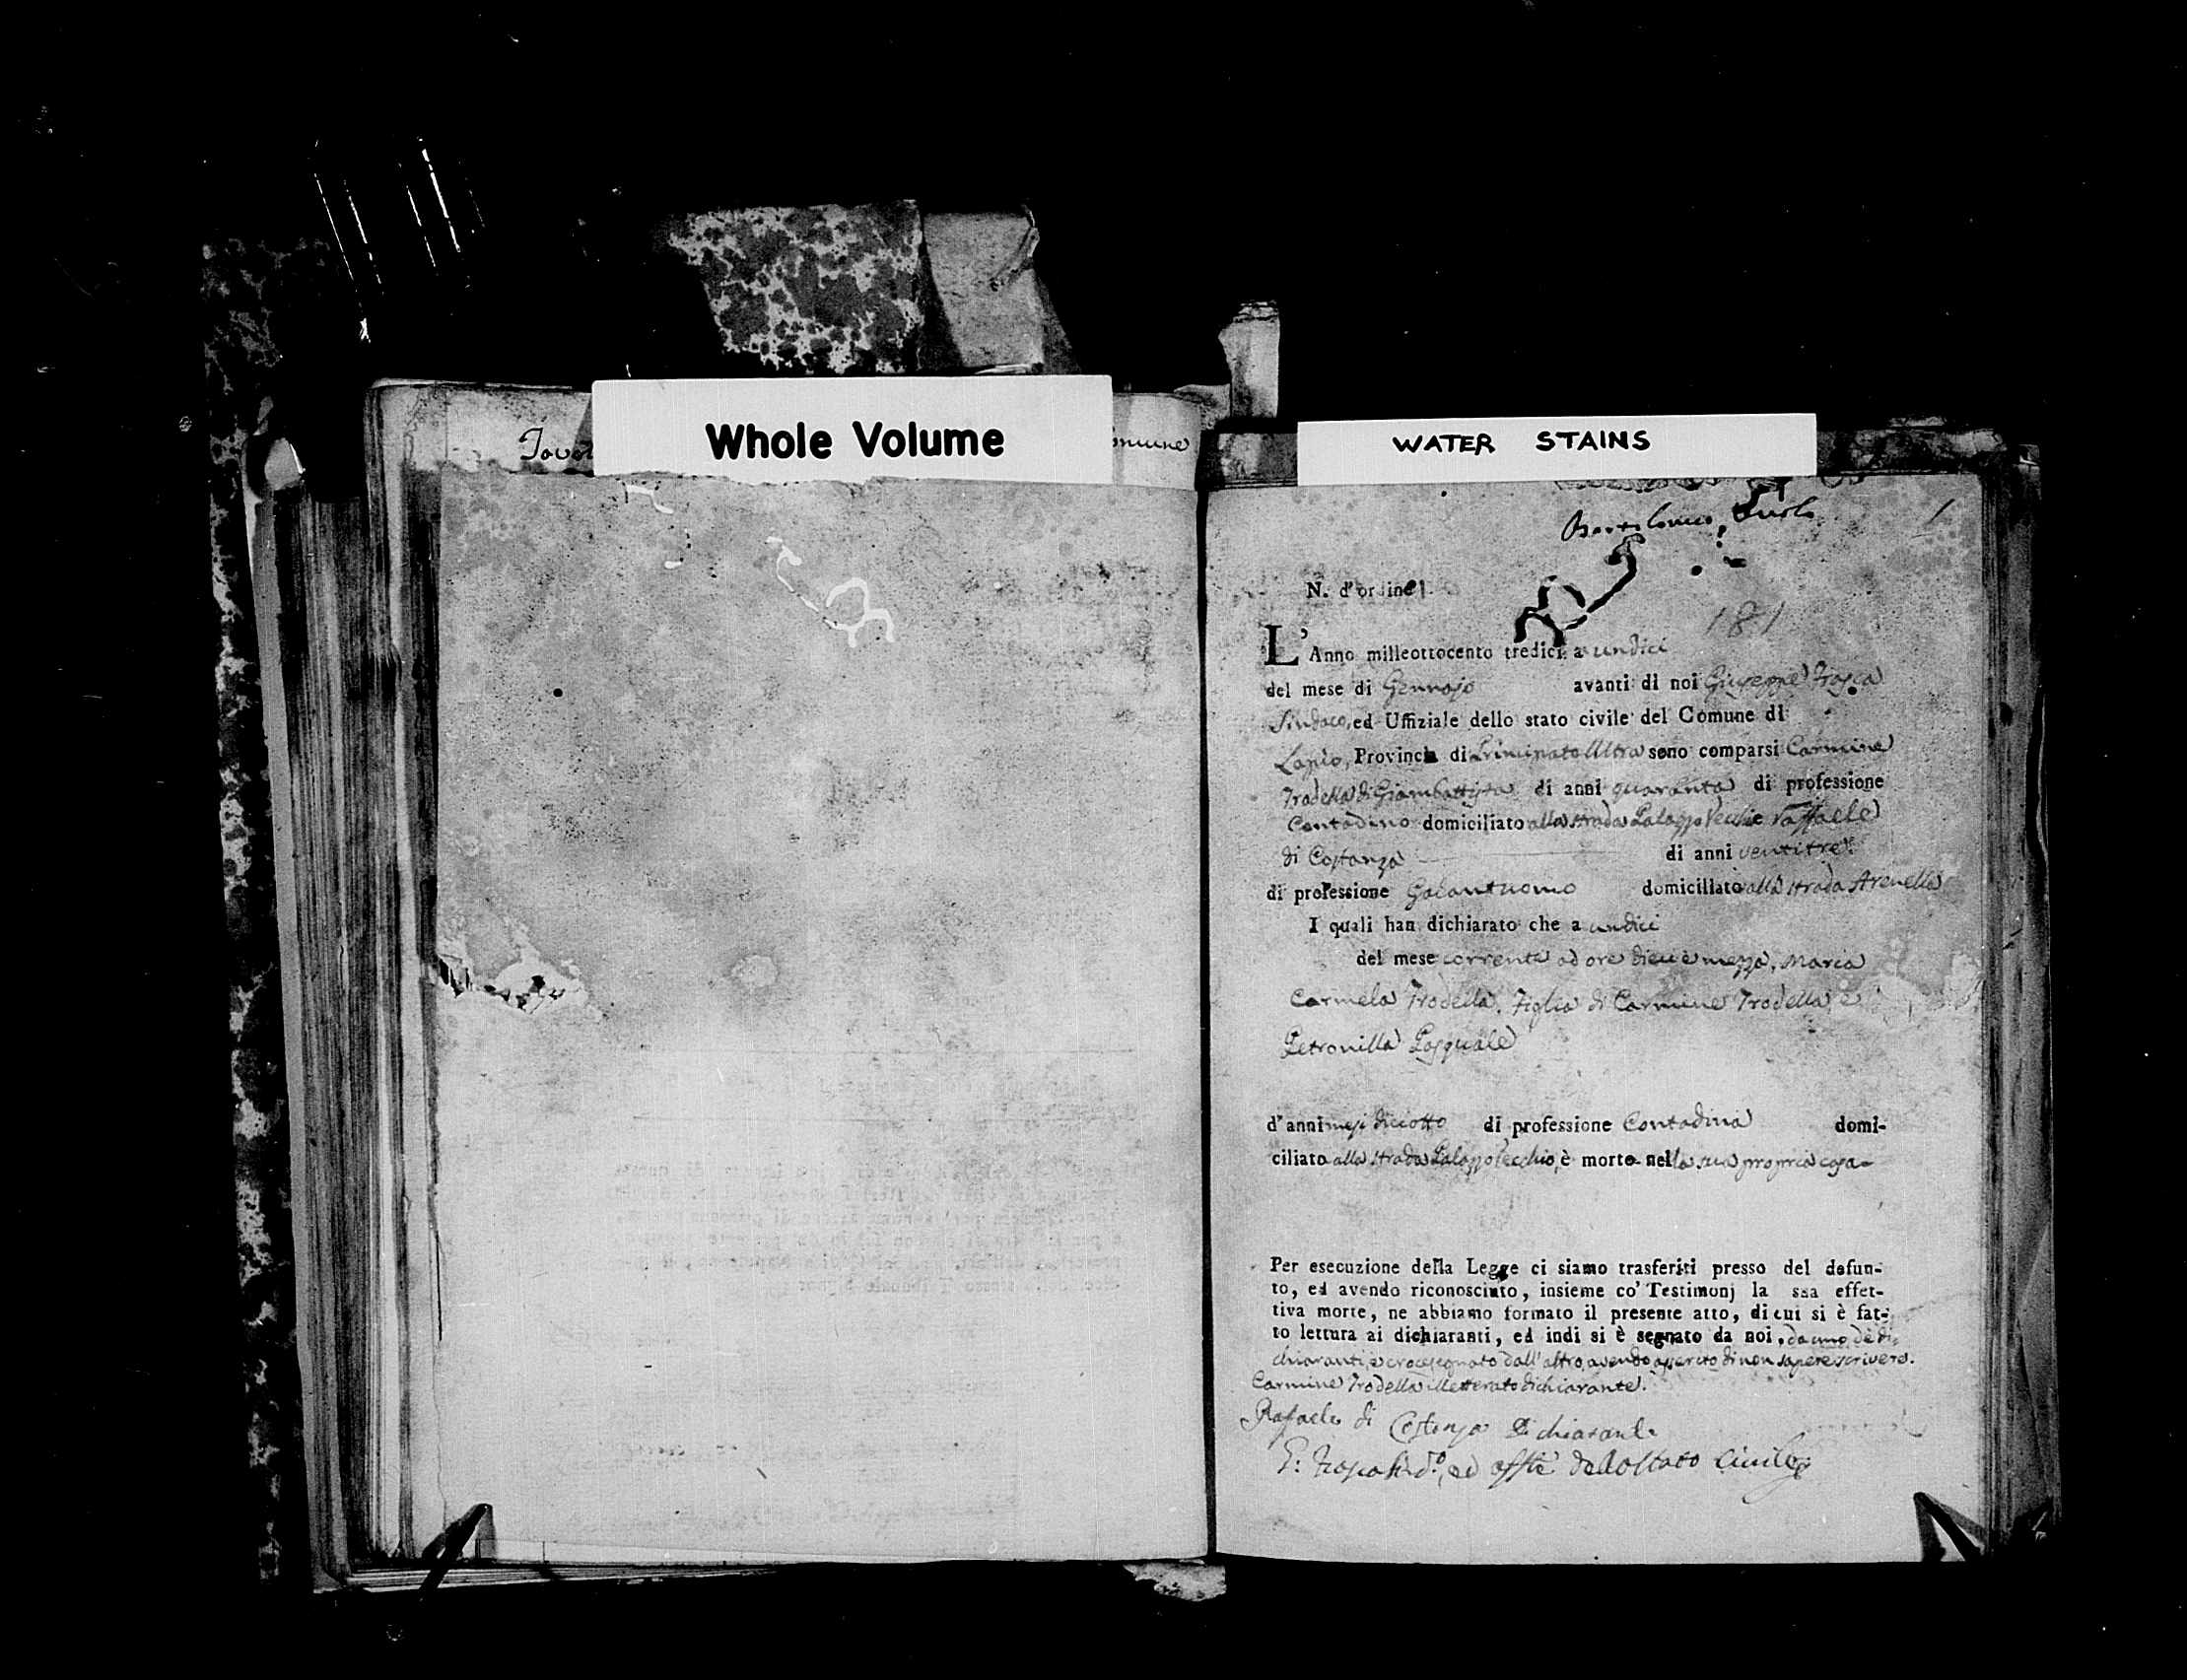 Whole Volume
WATER STAINS
omune
Bartolomeo
1
N. d'ordine 1
181
L'Anno milleottocento tredici a undici
del mese di Gennajo avanti di noi Giuseppe Trosca
Sindaco, ed Uffiziale dello stato civile del Comune di
Lapio, Provincia di Principato Ultra sono comparsi Carmine
Trodella di Giambattista di anni quaranta di professione
Contadino domiciliato alla strada Palazzo Vecchio e Raffaele
di Costanza di anni ventitre
di professione Galantuomo domiciliato alla strada Arenella
I quali han dichiarato che a undici
del mese corrente ad ore dieci e mezza, Maria
Carmela Trodella, Figlia di Carmine Trodella, e
Petronilla Pasquale
d'anni mesi diciotto di professione Contadina domi-
ciliato alla strada Palazzo Vecchio, è morto nella sua propria casa
Per esecuzione della Legge ci siamo trasferiti presso del defun-
to, ed avendo riconosciuto, insieme co' Testimonj la sua effet-
tiva morte, ne abbiamo formato il presente atto, di cui si è fat-
to lettura ai dichiaranti, ed indi si è segnato da noi, da uno de' di-
chiaranti, e crocesegnato dall'altro, avendo asserito di non sapere scrivere.
Carmine Trodella illetterato dichiarante.
Rafaele di Costanza Dichiarante
G: Trosca Sind.º, ed Uffle dello Stato Civile